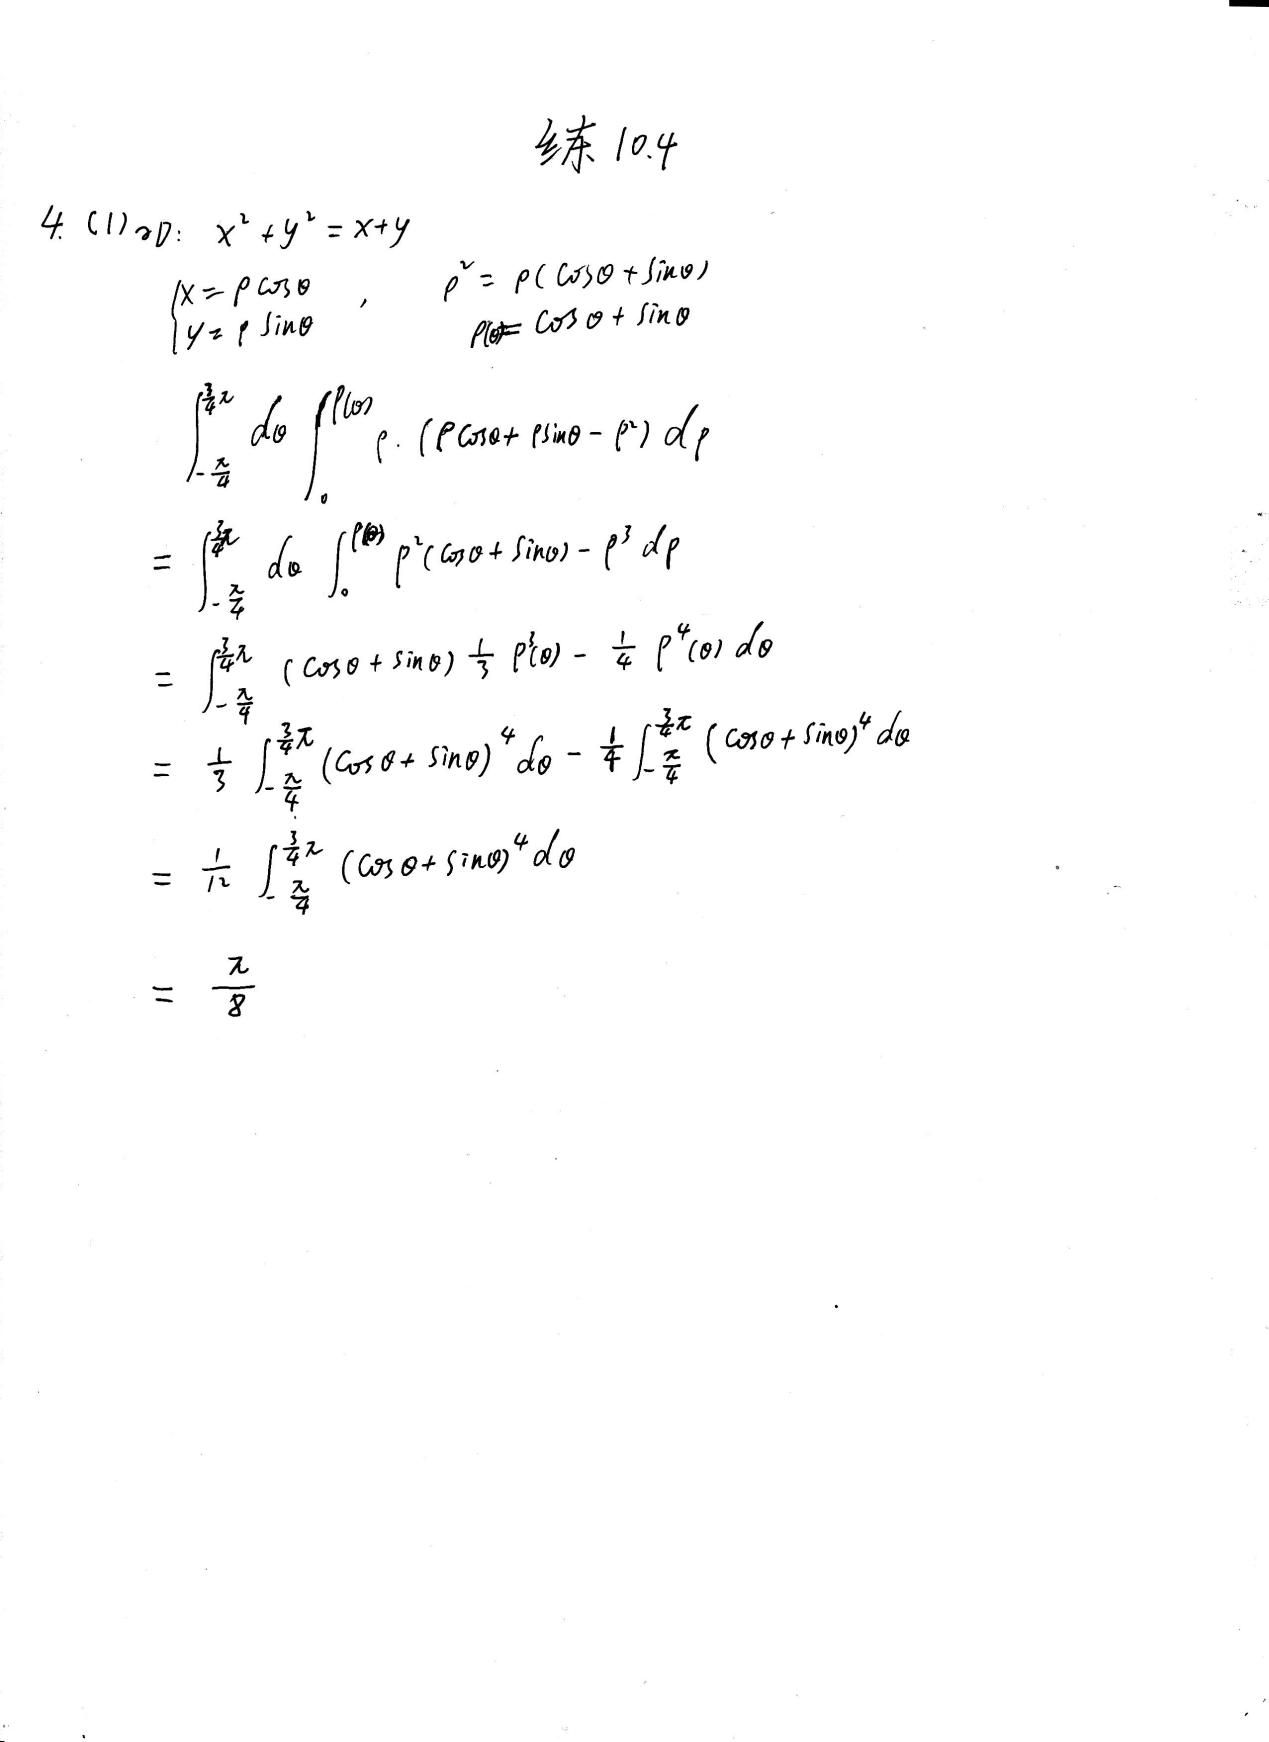 练 10.4
4. (1) ∂D: x² + y² = x+y
{x = ρ cosθ , ρ² = ρ(cosθ + sinθ)
y = ρ sinθ ρ(θ) = cosθ + sinθ
∫_{-π/4}^{3/4 π} dθ ∫_0^{ρ(θ)} ρ · (ρcosθ + ρsinθ - ρ²) dρ
= ∫_{-π/4}^{3/4 π} dθ ∫_0^{ρ(θ)} ρ²(cosθ + sinθ) - ρ³ dρ
= ∫_{-π/4}^{3/4 π} (cosθ + sinθ) 1/3 ρ³(θ) - 1/4 ρ⁴(θ) dθ
= 1/3 ∫_{-π/4}^{3/4 π} (cosθ + sinθ)⁴ dθ - 1/4 ∫_{-π/4}^{3/4 π} (cosθ + sinθ)⁴ dθ
= 1/12 ∫_{-π/4}^{3/4 π} (cosθ + sinθ)⁴ dθ
= π/8